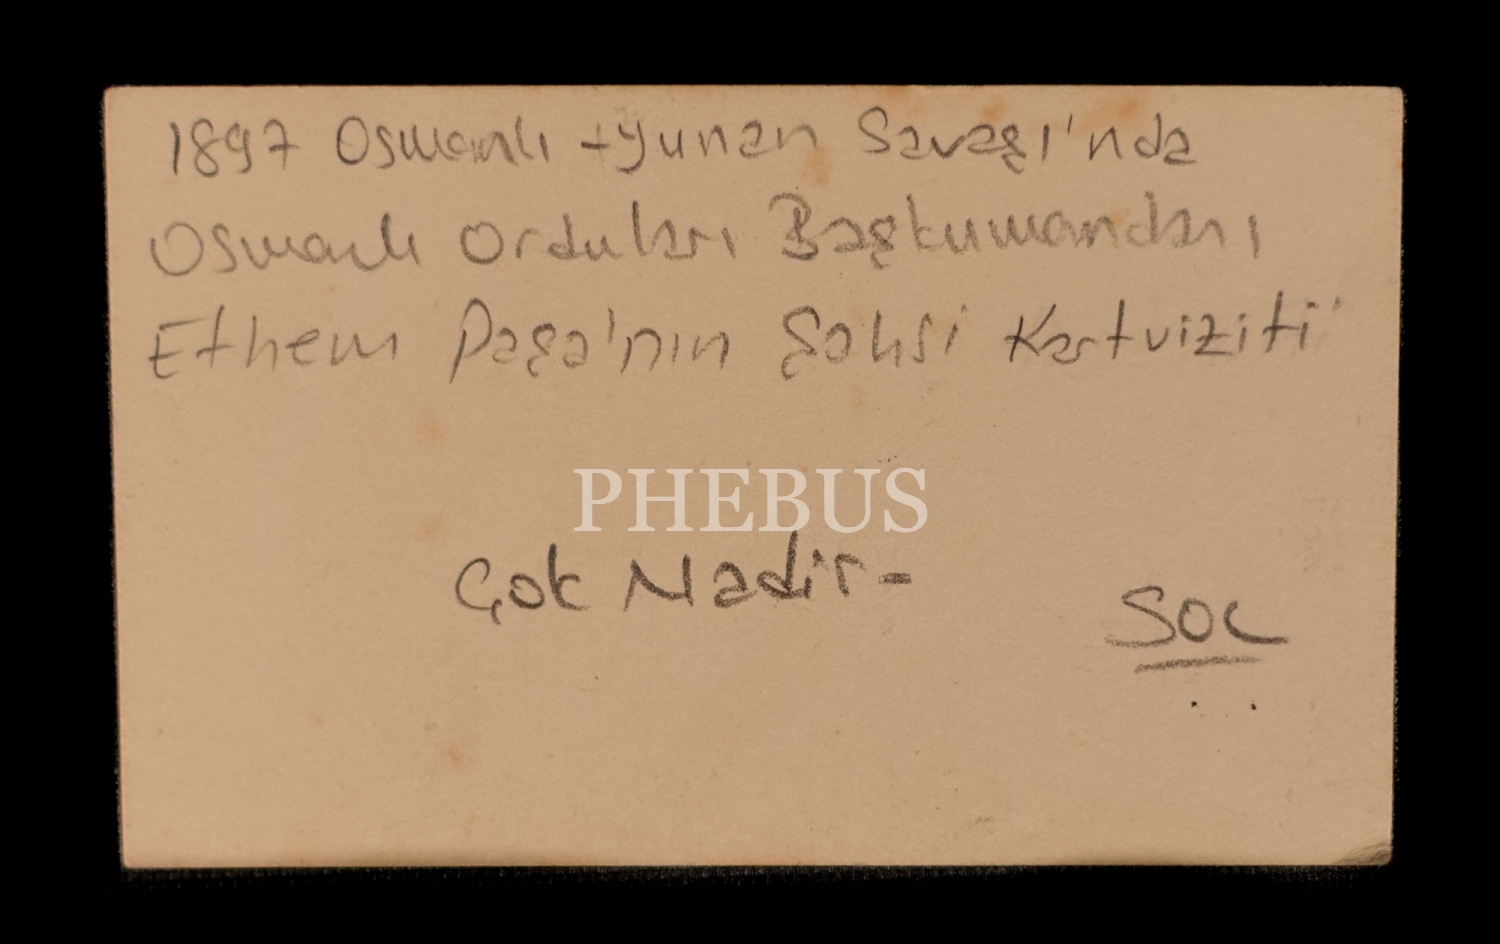 1897 Osmanlı - Yunan Savaşı'nda
Osmanlı Orduları Başkumandanı
Ethem Paşa'nın Şahsi Kartviziti
PHEBUS
Çok Nadir-